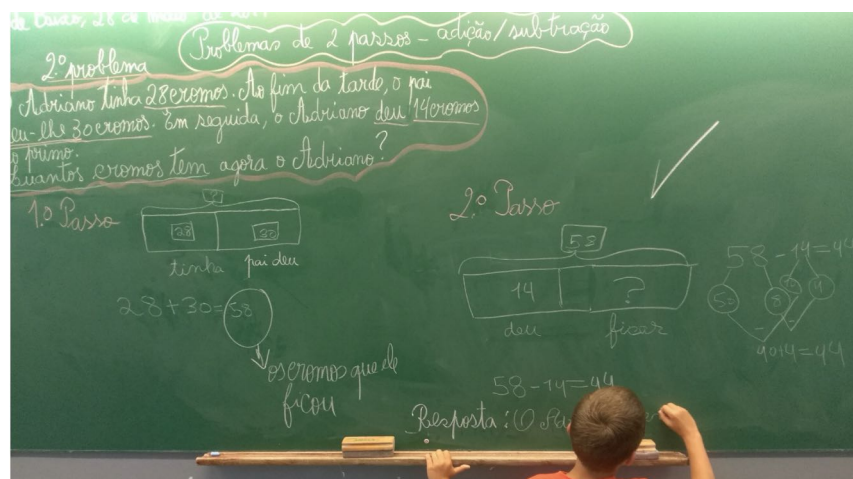 28 de maio de
Problemas de 2 passos – adição/subtração
2.º problema
Adriano tinha 28 cromos. Ao fim da tarde, o pai
eu-lhe 30 cromos. Em seguida, o Adriano deu 14 cromos
o primo.
Quantos cromos tem agora o Adriano?
1.º Passo
?
28 30
tinha pai deu
28+30=58
os cromos que ele
ficou
2.º Passo
58
14 ?
deu ficar
58-14=44
Resposta: O
58-14=44
50 8 10 4
40+4=44